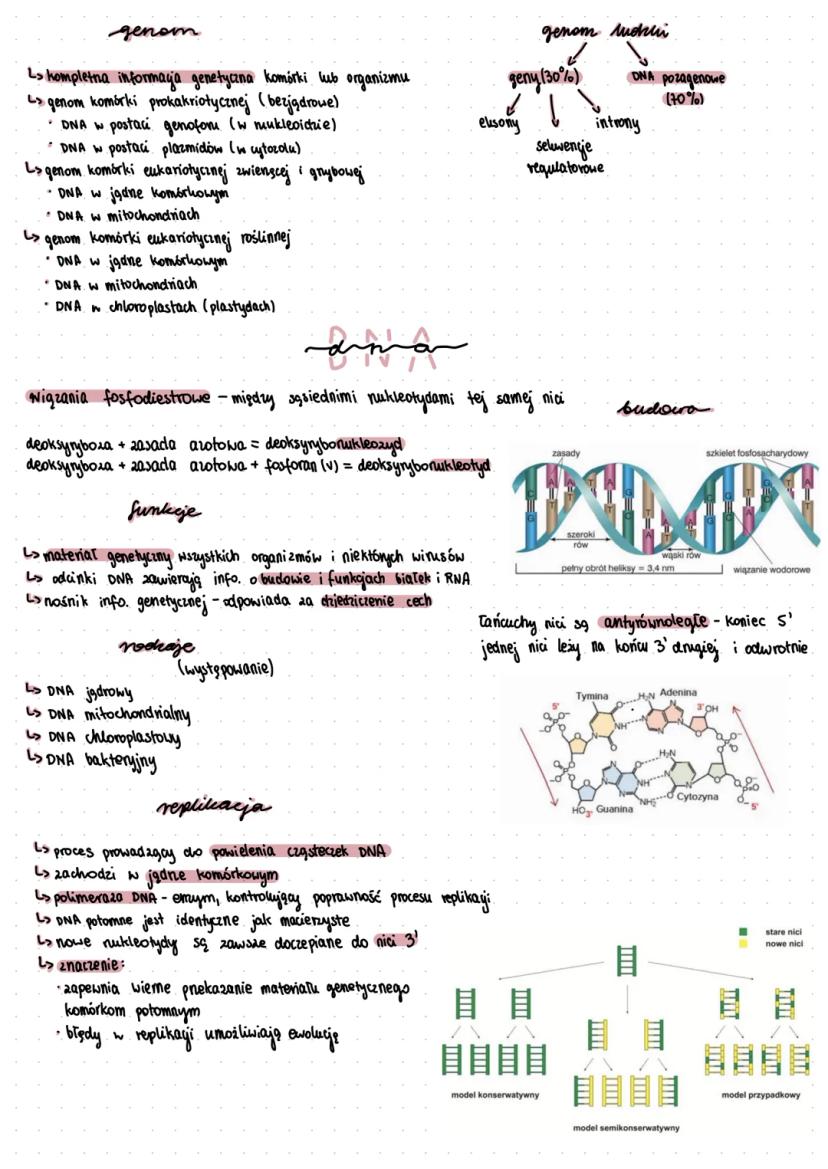 genom
↳ kompletna informacja genetyczna komórki lub organizmu
↳ genom komórki prokakriotycznej (bezjądrowe)
• DNA w postaci genoforu (w nukleoidzie)
• DNA w postaci plazmidów (w cytozolu)
↳ genom komórki eukariotycznej zwierzęcej i grzybowej
• DNA w jądrze komórkowym
• DNA w mitochondriach
↳ genom komórki eukariotycznej roślinnej
• DNA w jądrze komórkowym
• DNA w mitochondriach
• DNA w chloroplastach (plastydach)
genom ludzki
geny (30%)
DNA pozagenowe
(70%)
eksony
sekwencje
regulatorowe
introny
DNA
dna
wiązania fosfodiestrowe - między sąsiednimi nukleotydami tej samej nici
deoksyryboza + zasada azotowa = deoksyrybonukleozyd
deoksyryboza + zasada azotowa + fosforan (v) = deoksyrybonukleotyd
funkcje
↳ materiał genetyczny wszystkich organizmów i niektórych wirusów
↳ odcinki DNA zawierają info. o budowie i funkcjach białek i RNA
↳ nośnik info. genetycznej - odpowiada za dziedziczenie cech
rodzaje
(występowanie)
↳ DNA jądrowy
↳ DNA mitochondrialny
↳ DNA chloroplastowy
↳ DNA bakteryjny
budowa
zasady
szkielet fosfosacharydowy
C G A T T A T A G C T A A T C G G C A T T A
szeroki
rów
wąski rów
pełny obrót heliksy = 3,4 nm
wiązanie wodorowe
Łańcuchy nici są antyrównoległe - koniec 5'
jednej nici leży na końcu 3' drugiej i odwrotnie
Tymina
Adenina
5'
3'
OH
O
H₂N
NH
N
P
Guanina
Cytozyna
HO
3'
5'
NH₂
replikacja
↳ proces prowadzący do powielenia cząsteczek DNA
↳ zachodzi w jądrze komórkowym
↳ polimeraza DNA - enzym, kontrolujący poprawność procesu replikacji
↳ DNA potomne jest identyczne jak macierzyste
↳ nowe nukleotydy są zawsze doczepiane do nici 3'
↳ znaczenie:
• zapewnia wierne przekazanie materiału genetycznego
komórkom potomnym
• błędy w replikacji umożliwiają ewolucję
stare nici
nowe nici
model konserwatywny
model semikonserwatywny
model przypadkowy